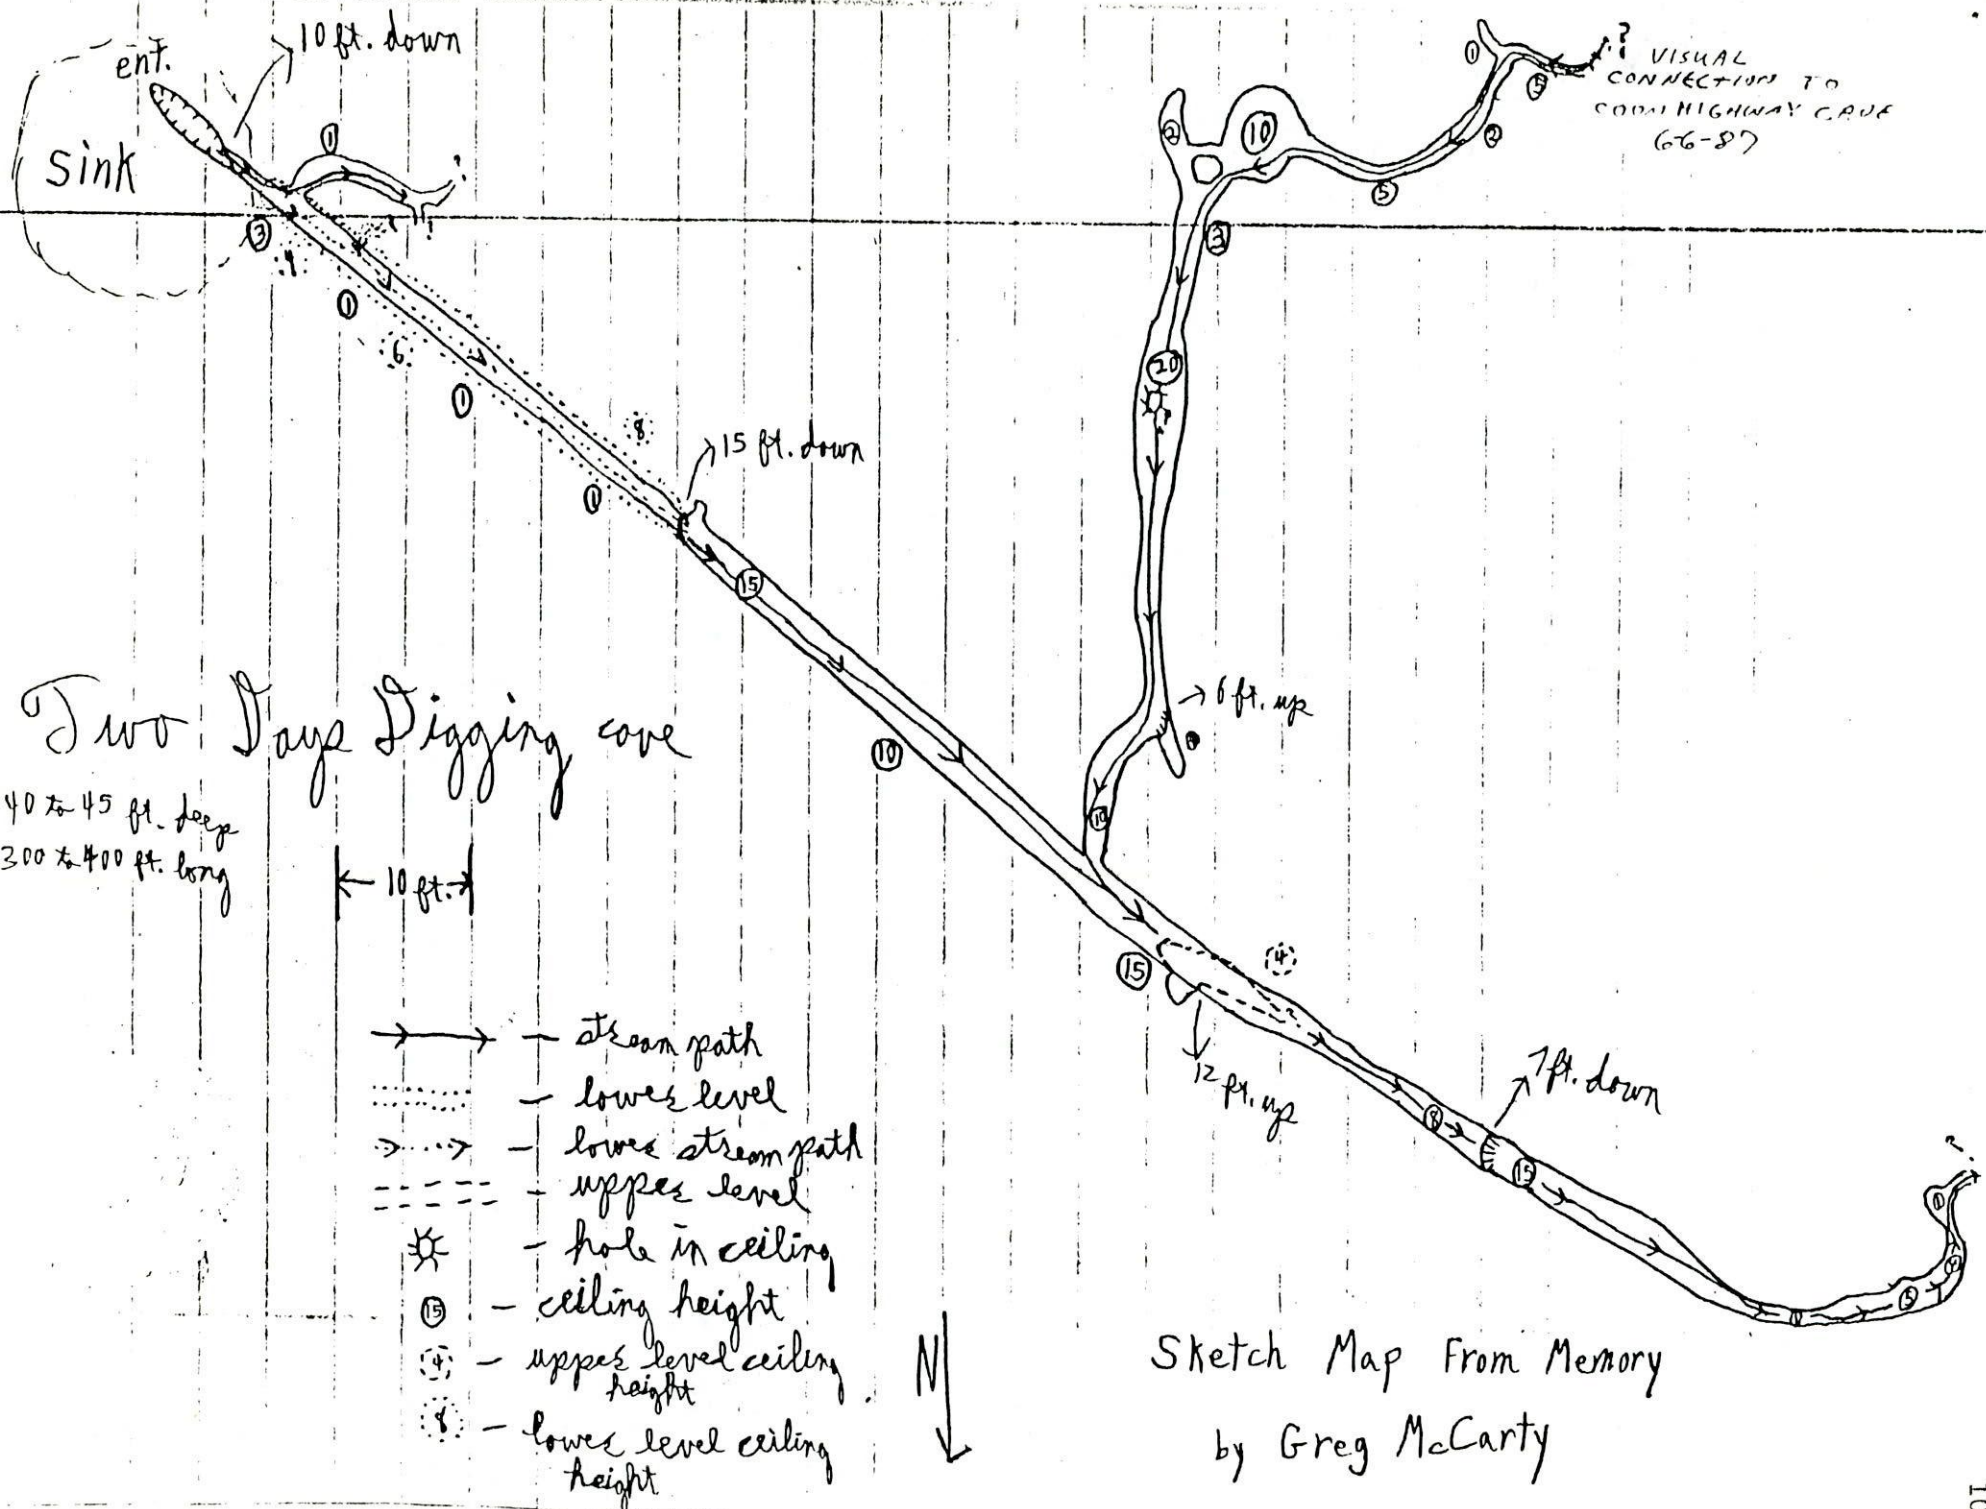 ent.
10 ft. down
sink
①
?
③
4
①
6
①
8
①
15 ft. down
⑮
⑩
①
⑤
?
VISUAL
CONNECTION TO
COON HIGHWAY CAVE
6-6-87
②
②
⑩
⑤
③
⑳
?
6 ft. up
⑩
⑮
4
12 ft. up
⑧
7 ft. down
⑮
⑤
?
Two Days Digging cave
40 to 45 ft. deep
300 to 400 ft. long
10 ft.
— stream path
— lower level
— lower stream path
- upper level
- hole in ceiling
⑮ - ceiling height
4 - upper level ceiling
height
8 - lower level ceiling
height
N
Sketch Map From Memory
by Greg McCarty